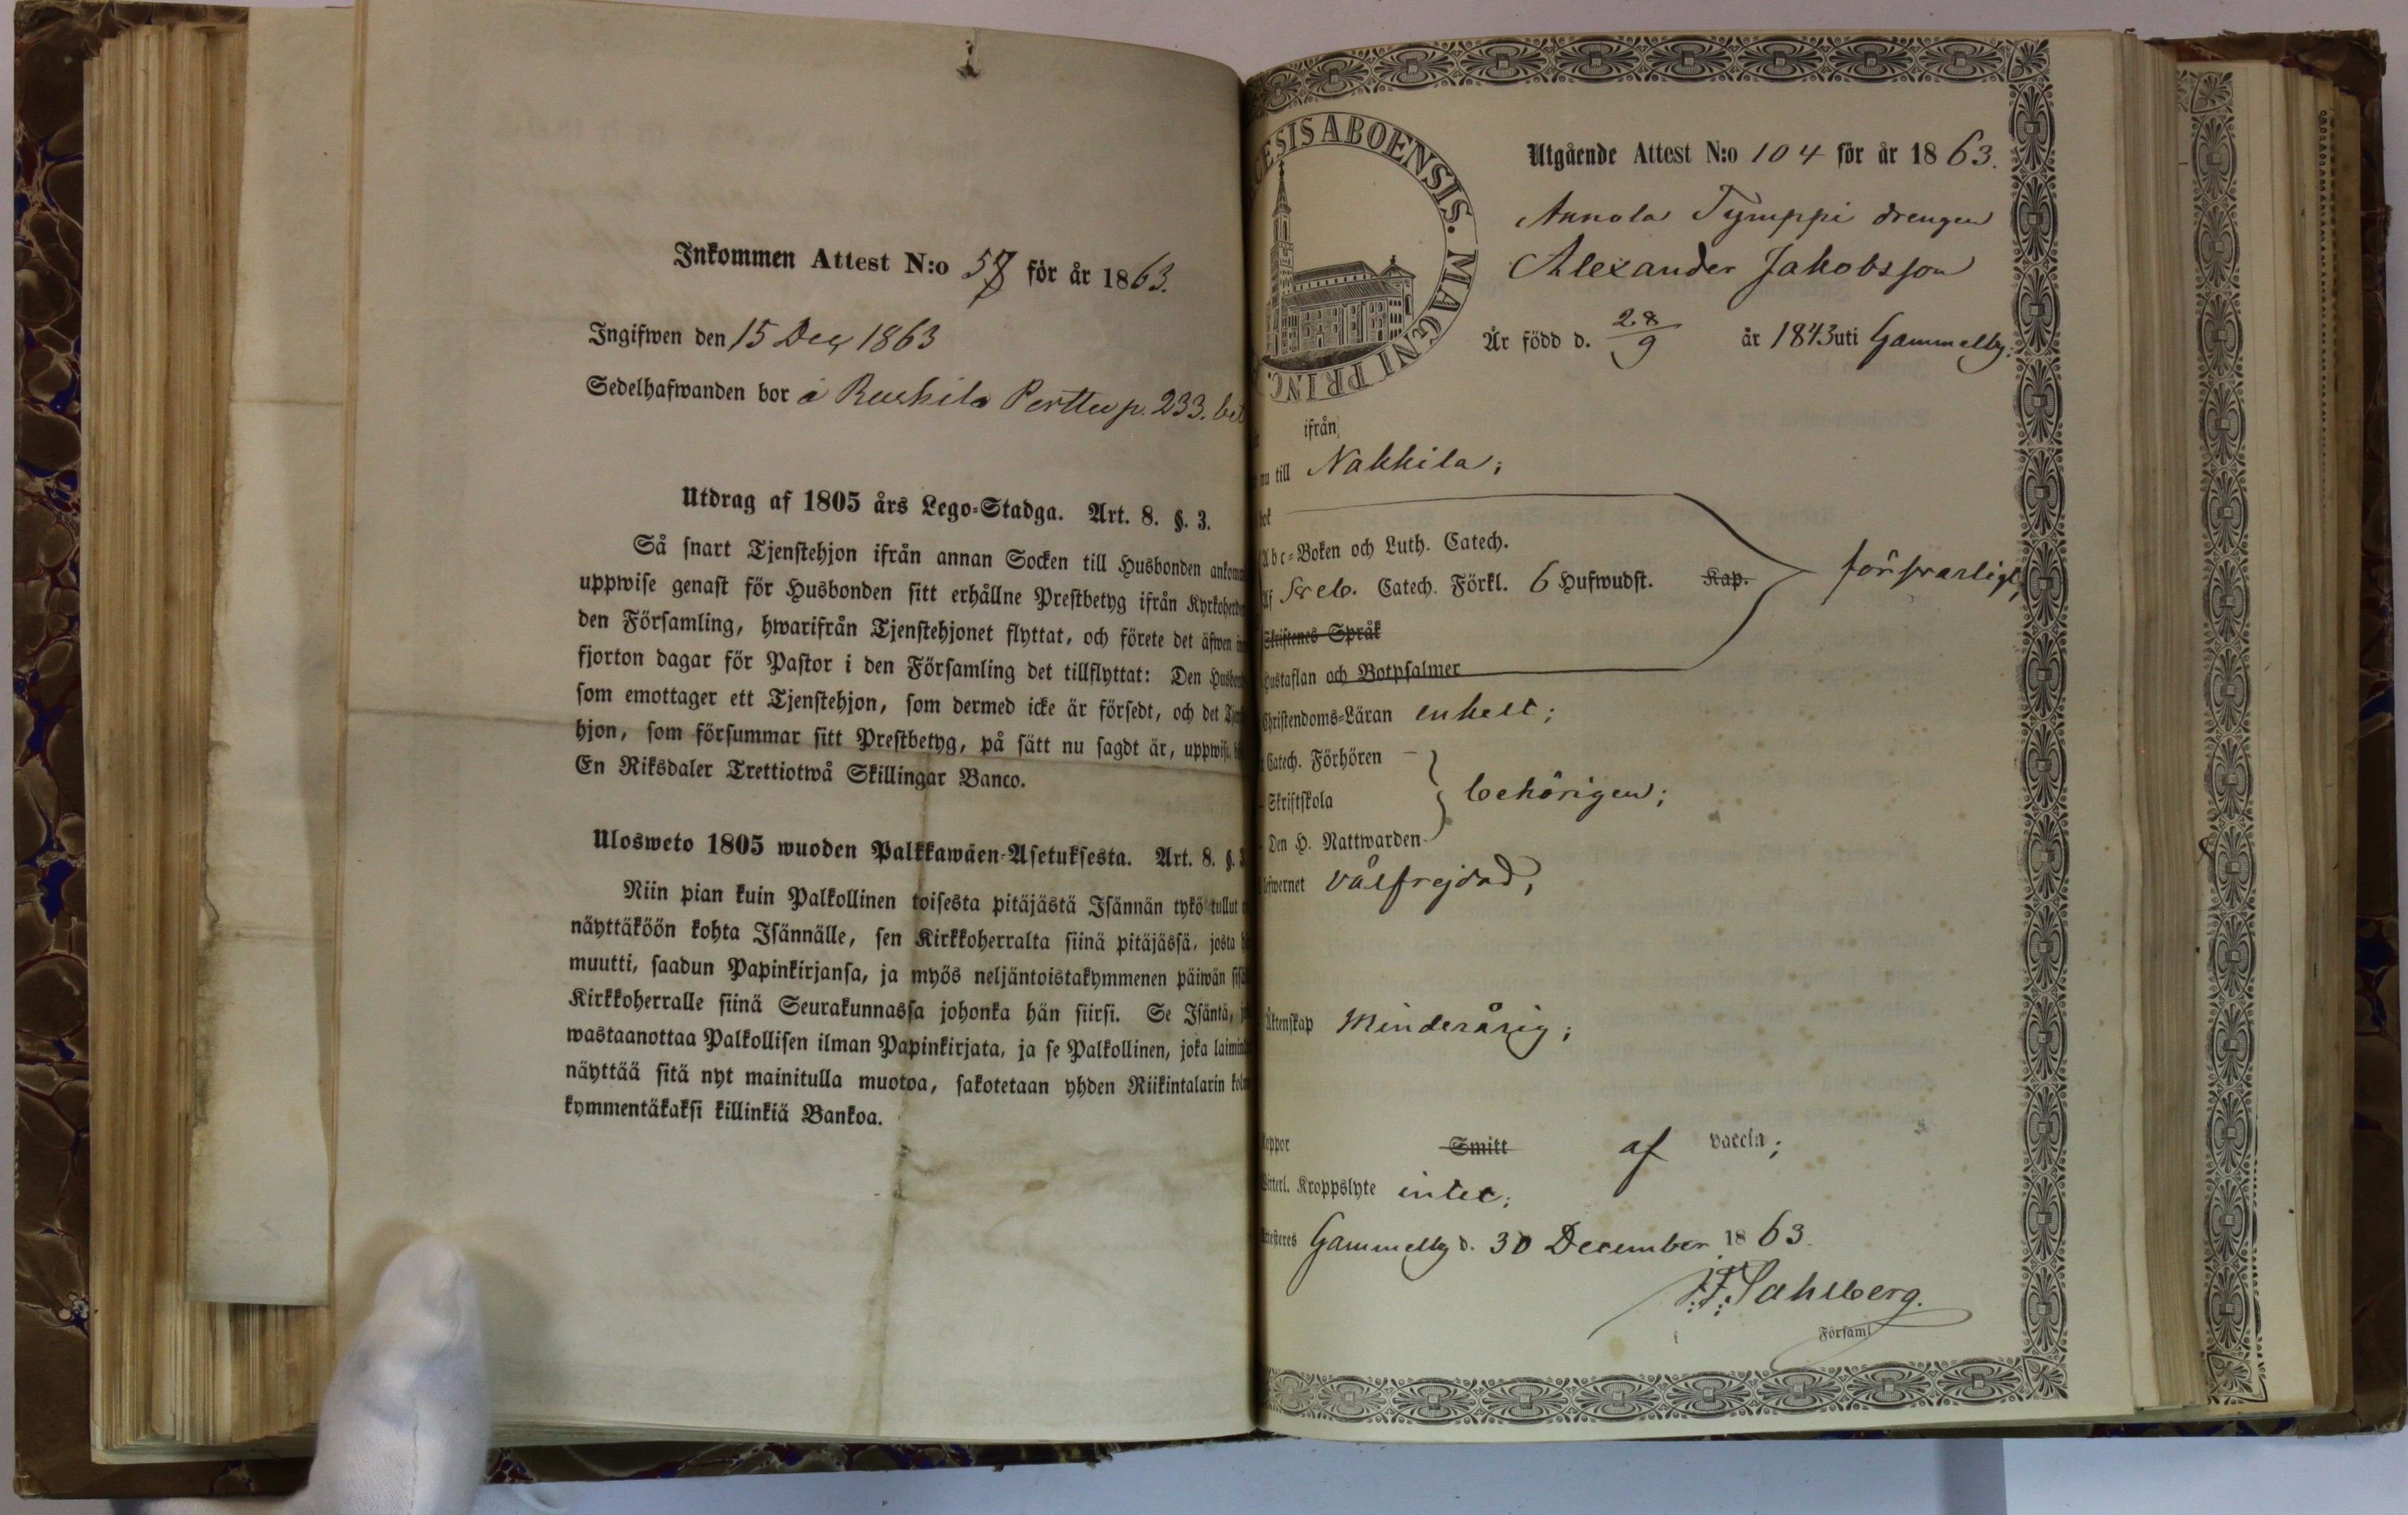 Inkommen Attest N:o 57 för år 1863.
Ingifwen den 15 Dec 1863
Sedelhafwanden bor å Ruskila Perttu p. 233.
Utdrag af 1805 års Lego-Stadga. Art. 8. §. 3.
Så snart Tjenstehjon ifrån annan Socken till Husbonden
uppwise genast för Husbonden sitt erhållne Prestbetyg ifrån
den Församling, hwarifrån Tjenstehjonet flyttat, och förete det äfwen
fjorton dagar för Pastor i den Församling det tillflyttat: Den
som emottager ett Tjenstehjon, som dermed icke är försedt, och det
hjon, som försummar sitt Prestbetyg, på sätt nu sagdt är,
En Riksdaler Trettiotwå Skillingar Banco.
Ulosweto 1805 wuoden Palkkawäen-Asetuksesta. Art. 8. §.
Niin pian kuin Palkollinen toisesta pitäjästä Isännän tykö tullut
näyttäköön kohta Isännälle, sen Kirkkoherralta siinä pitäjässä, josta
muutti, saadun Papinkirjansa, ja myös neljäntoistakymmenen päiwän
Kirkkoherralle siinä Seurakunnassa johonka hän siirsi. Se Isäntä,
wastaanottaa Palkollisen ilman Papinkirjata, ja se Palkollinen, joka
näyttää sitä nyt mainitulla muotoa, sakotetaan yhden Riikintalarin
kymmentäkaksi killinkiä Bankoa.
ESIS ABOENSIS. MAGNI PRINC.
Utgående Attest N:o 104 för år 1863.
Annola Tymppi drengen
Alexander Jakobsson
Är född d. 28/9 år 1843 uti Gammelby;
ifrån
nu till Nakkila;
Abc-Boken och Luth. Catech.
Af Sveb. Catech. Förkl. 6 Hufwudst. Kap. försvarligt,
Skriftenes Språk
Hustaflan och Botpsalmer
Christendoms-Läran enkelt;
Catech. Förhören
Skriftskola behörigen;
Den H. Nattwarden
Lefwernet välfrejdad,
Äktenskap Minderårig;
Koppor Smitt af vaccin;
Witterl. Kroppslyte intet;
Attesteres Gammelby d. 30 December 1863.
F. F. Sahlberg.
Församl